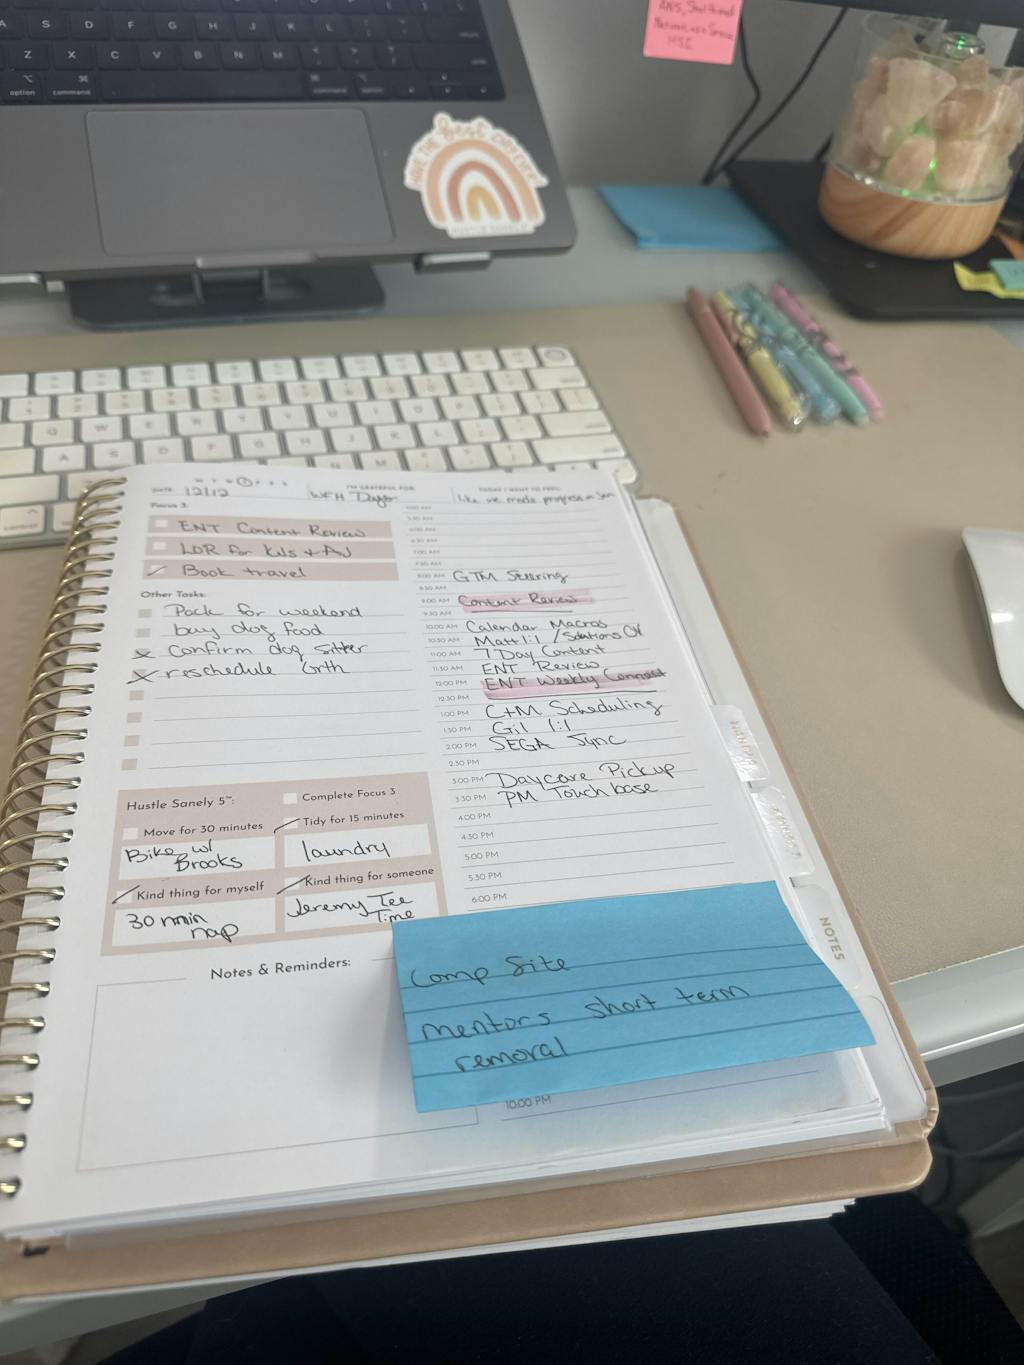 A S D F G H J K
Z X C V B N M
option command
command option
HAVE THE best DAY EVER!
ANS,
HSE
Q W E
A S
control
DATE: 12/12
I'M GRATEFUL FOR: WFH Days
TODAY I WANT TO FEEL: like we made progress in Jan
Focus 3:
ENT Content Review
LOR for kids + AJ
Book travel
Other Tasks:
Pack for weekend
buy dog food
Confirm dog sitter
reschedule Grth
5:00 AM
5:30 AM
6:00 AM
6:30 AM
7:00 AM
7:30 AM
8:00 AM GTM Steering
8:30 AM
9:00 AM Content Review
9:30 AM
10:00 AM Calendar Macros
10:30 AM Matt 1:1 / Solutions OH
11:00 AM 7 Day Content
11:30 AM ENT Review
12:00 PM ENT Weekly Connect
12:30 PM
1:00 PM C+M Scheduling
1:30 PM Gil 1:1
2:00 PM SEGA Sync
2:30 PM
3:00 PM Daycare Pickup
3:30 PM PM Touch base
4:00 PM
4:30 PM
5:00 PM
5:30 PM
6:00 PM
Hustle Sanely 5™:
Complete Focus 3
Move for 30 minutes
Bike w/
Brooks
Tidy for 15 minutes
laundry
Kind thing for myself
30 min
nap
Kind thing for someone
Jeremy Tee
Time
Notes & Reminders:
Comp Site
mentors short term
removal
10:00 PM
NOTES